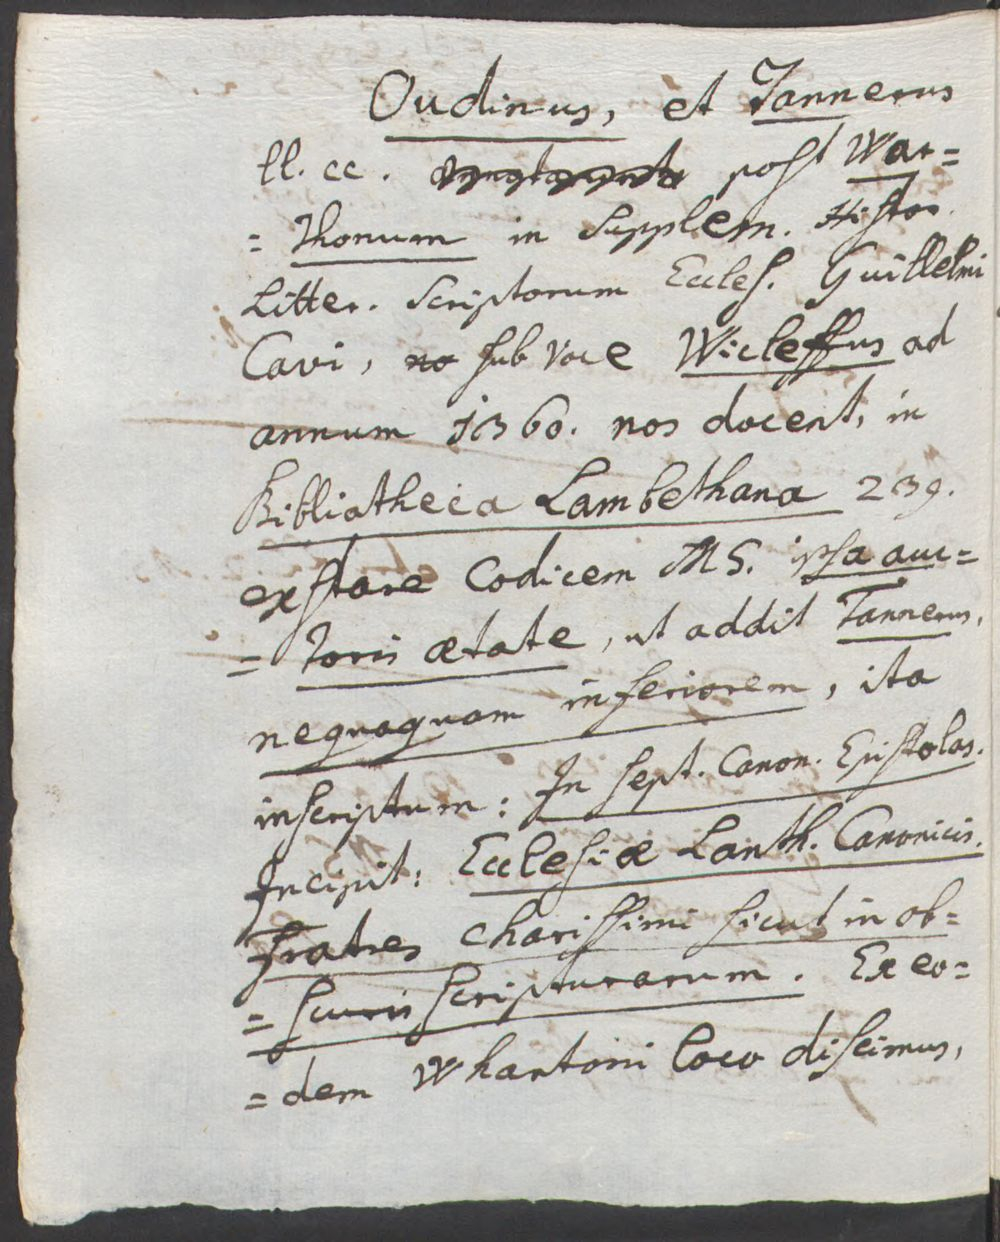 Oudinus, et Tannerus
ll. cc. post War=
= Thonum in Supplem. Histor.
Litter. Scriptorum Eccles. Guillelmi
Cavi, sub voce Wicleffus ad
annum 1360. nos docent, in
Bibliotheca Lambethana 239.
exstare Codicem MS. ipsa auc=
= toris ætate, ut addit Tannerus,
nequaquam inferiorem, ita
inscriptum: In sept. Canon. Epistolas.
Incipit: Ecclesiæ Lanth. Canonicis.
Fratres charissimi sicut in ob=
= scuris scripturarum. Ex eo=
= dem Whartoni loco discimus,